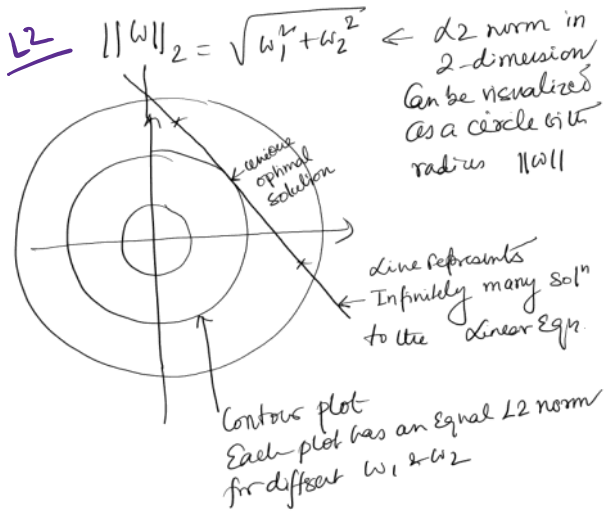 L2
||W||₂ = √(w₁² + w₂²) ← L2 norm in
2-dimension
Can be visualized
as a circle with
radius ||w||
unique
optimal
solution
Line represents
Infinitely many solⁿ
to the Linear Eqn.
Contour plot
Each plot has an Equal L2 norm
for different w₁ & w₂